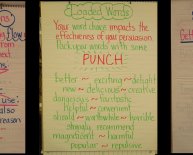 Loaded Words
Your word choice impacts the
effectiveness of your persuasion
Pack your words with some
PUNCH
Better ~ exciting ~ delight
new ~ delicious ~ creative
dangerous ~ fantastic
Helpful ~ convenient
should ~ worthwhile ~ horrible
strongly recommend
magnificent ~ harmful
popular ~ repulsive